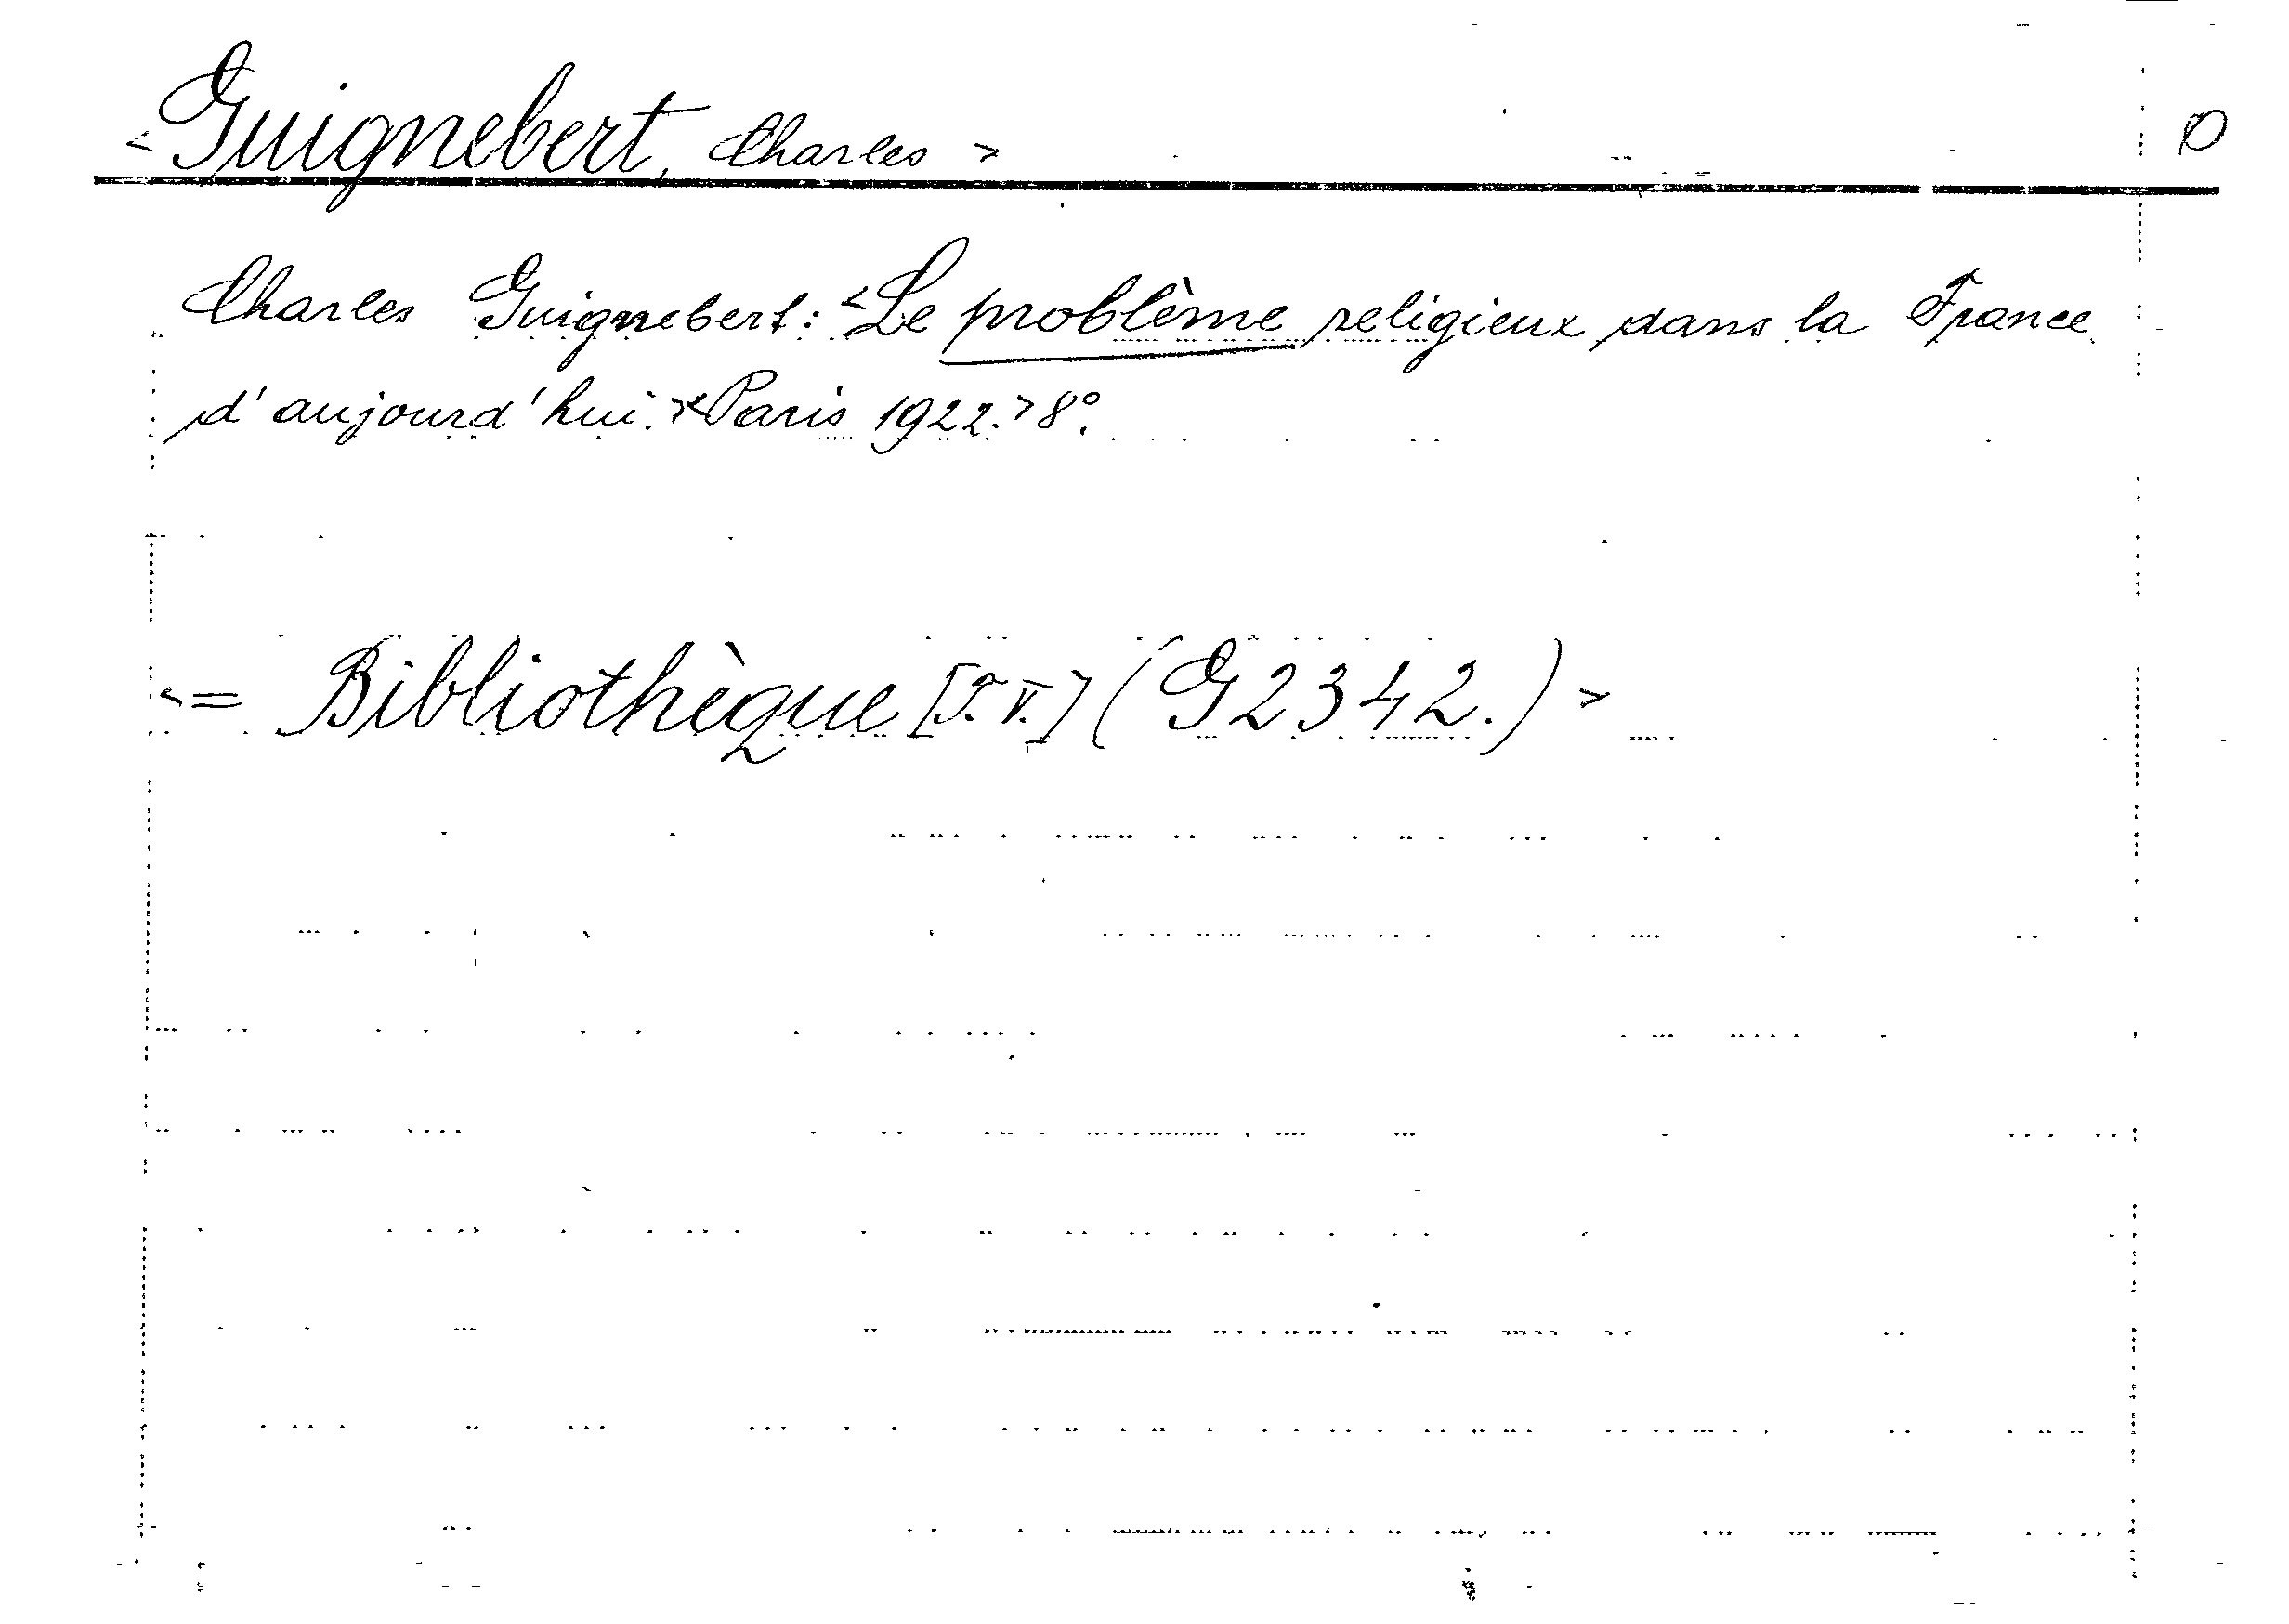 <Guignebert, Charles> D
Charles Guignebert: <Le problème religieux dans la France
d'aujourd'hui.><Paris 1922.> 8°.
<= Bibliothèque [J. V.] (G 2342.)>